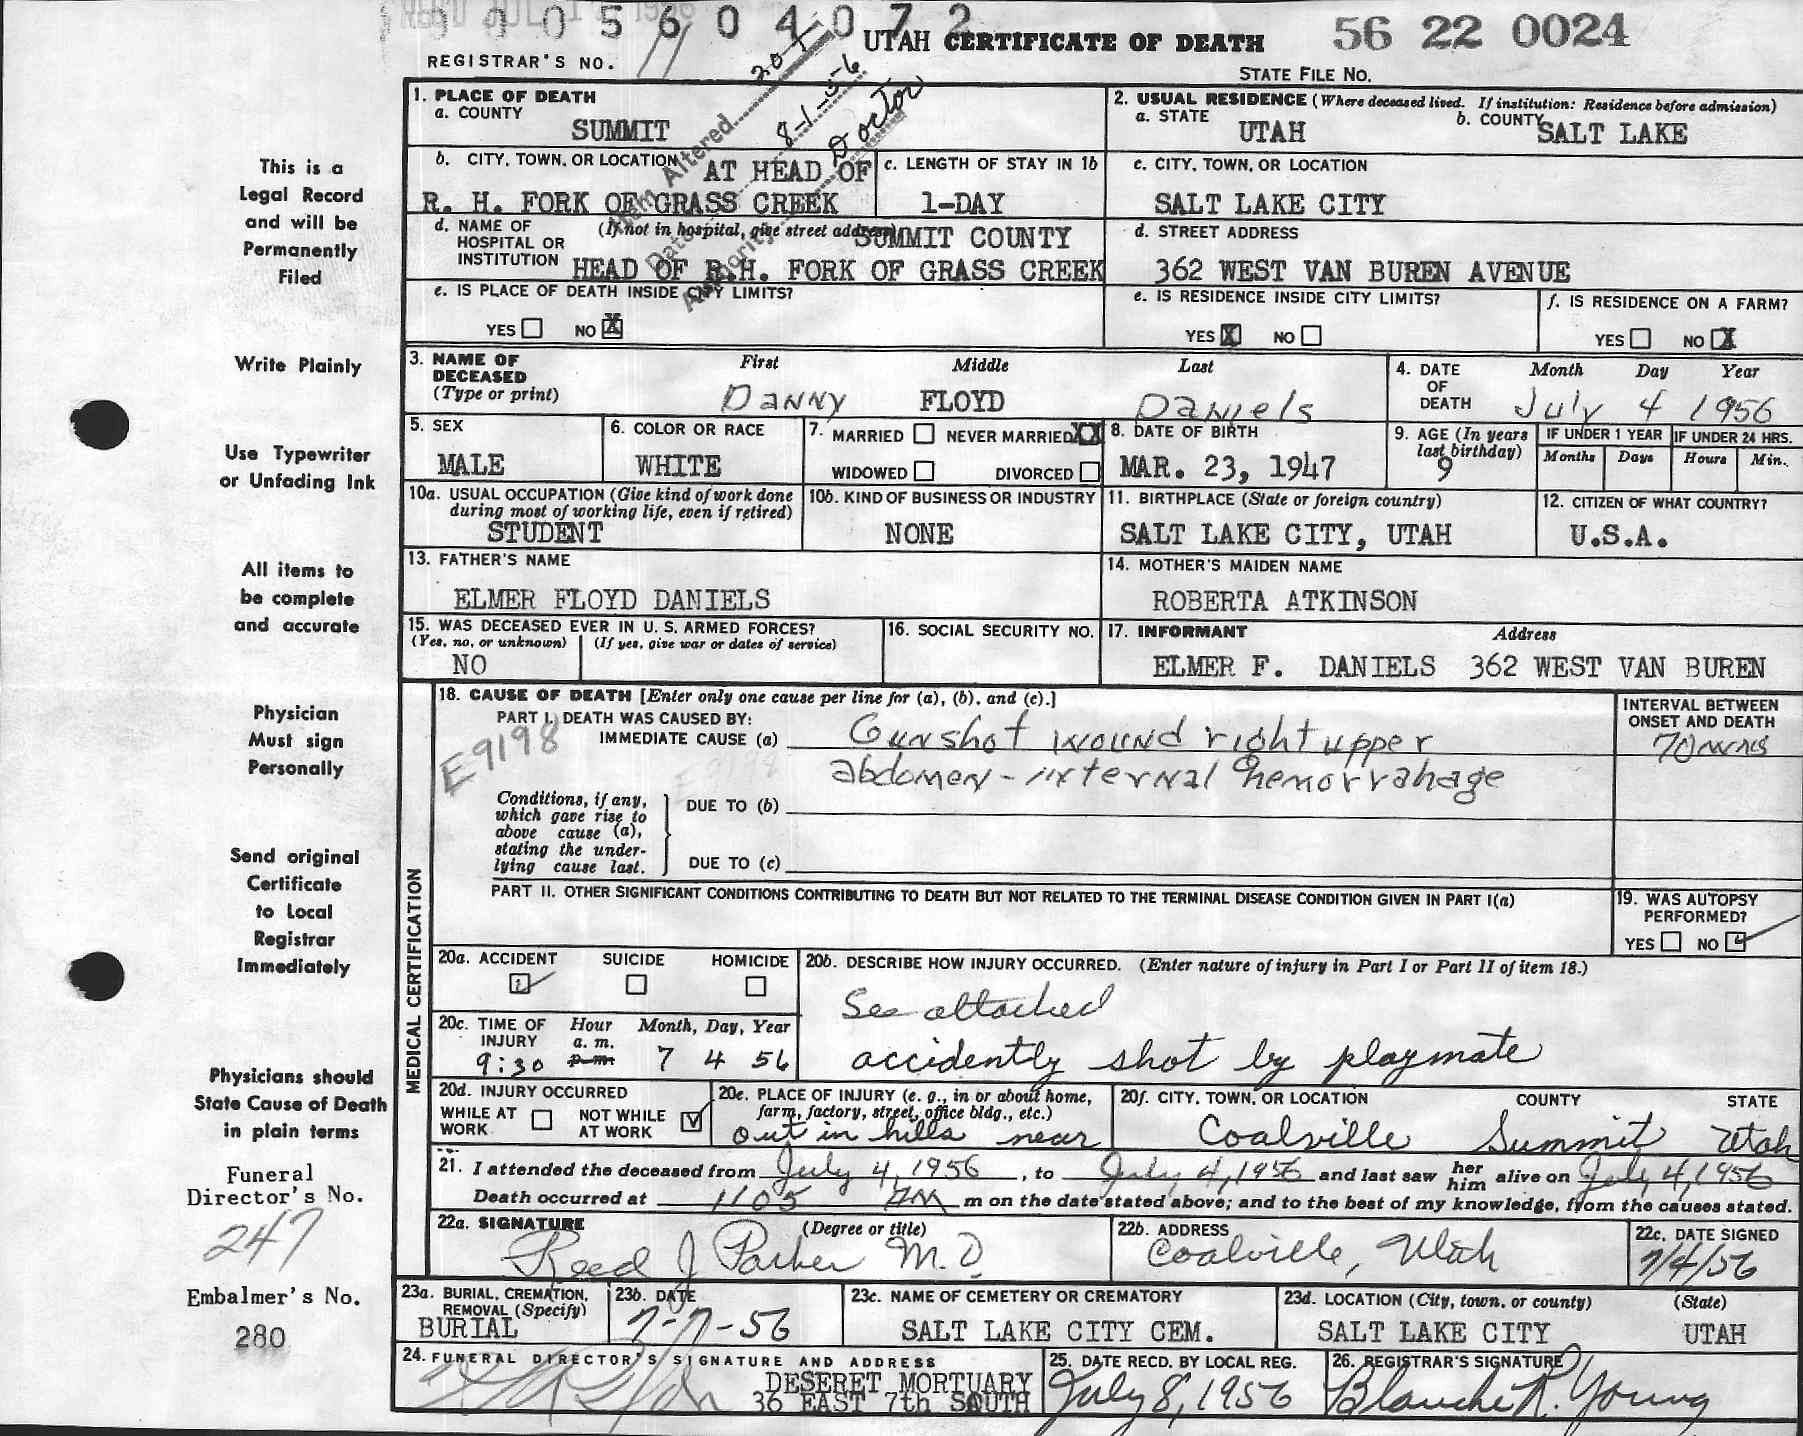 REC'D JUL 1956
0 0 0 5 6 0 4 0 7 2
UTAH CERTIFICATE OF DEATH
56 22 0024
REGISTRAR'S NO. 11
STATE FILE NO.
Item Altered 20f
Date 8-1-56
Authority Doctor
This is a
Legal Record
and will be
Permanently
Filed
Write Plainly
Use Typewriter
or Unfading Ink
All items to
be complete
and accurate
Physician
Must sign
Personally
Send original
Certificate
to Local
Registrar
Immediately
Physicians should
State Cause of Death
in plain terms
Funeral
Director's No.
247
Embalmer's No.
280
1. PLACE OF DEATH
a. COUNTY
SUMMIT
2. USUAL RESIDENCE (Where deceased lived. If institution: Residence before admission)
a. STATE UTAH b. COUNTY SALT LAKE
b. CITY, TOWN, OR LOCATION AT HEAD OF
R. H. FORK OF GRASS CREEK
c. LENGTH OF STAY IN 1b
1-DAY
c. CITY, TOWN, OR LOCATION
SALT LAKE CITY
d. NAME OF HOSPITAL OR INSTITUTION (If not in hospital, give street address) SUMMIT COUNTY
HEAD OF R.H. FORK OF GRASS CREEK
d. STREET ADDRESS
362 WEST VAN BUREN AVENUE
e. IS PLACE OF DEATH INSIDE CITY LIMITS?
YES NO X
e. IS RESIDENCE INSIDE CITY LIMITS?
YES X NO
f. IS RESIDENCE ON A FARM?
YES NO X
3. NAME OF DECEASED (Type or print)
First Middle Last
Danny FLOYD Daniels
4. DATE OF DEATH
Month Day Year
July 4 1956
5. SEX
MALE
6. COLOR OR RACE
WHITE
7. MARRIED NEVER MARRIED XX
WIDOWED DIVORCED
8. DATE OF BIRTH
MAR. 23, 1947
9. AGE (In years last birthday)
9
IF UNDER 1 YEAR IF UNDER 24 HRS.
Months Days Hours Min.
10a. USUAL OCCUPATION (Give kind of work done during most of working life, even if retired)
STUDENT
10b. KIND OF BUSINESS OR INDUSTRY
NONE
11. BIRTHPLACE (State or foreign country)
SALT LAKE CITY, UTAH
12. CITIZEN OF WHAT COUNTRY?
U.S.A.
13. FATHER'S NAME
ELMER FLOYD DANIELS
14. MOTHER'S MAIDEN NAME
ROBERTA ATKINSON
15. WAS DECEASED EVER IN U. S. ARMED FORCES?
(Yes, no, or unknown) (If yes, give war or dates of service)
NO
16. SOCIAL SECURITY NO.
17. INFORMANT Address
ELMER F. DANIELS 362 WEST VAN BUREN
MEDICAL CERTIFICATION
18. CAUSE OF DEATH [Enter only one cause per line for (a), (b), and (c).]
PART I. DEATH WAS CAUSED BY:
IMMEDIATE CAUSE (a) Gunshot wound right upper
abdomen - internal hemorrahage
E9198
INTERVAL BETWEEN ONSET AND DEATH
Conditions, if any, which gave rise to above cause (a), stating the underlying cause last.
DUE TO (b)
DUE TO (c)
PART II. OTHER SIGNIFICANT CONDITIONS CONTRIBUTING TO DEATH BUT NOT RELATED TO THE TERMINAL DISEASE CONDITION GIVEN IN PART I(a)
19. WAS AUTOPSY PERFORMED?
YES NO
20a. ACCIDENT SUICIDE HOMICIDE
20b. DESCRIBE HOW INJURY OCCURRED. (Enter nature of injury in Part I or Part II of item 18.)
See attached
accidently shot by playmate
20c. TIME OF INJURY Hour Month, Day, Year
a. m.
9:30 p. m. 7 4 56
20d. INJURY OCCURRED
WHILE AT WORK NOT WHILE AT WORK
20e. PLACE OF INJURY (e. g., in or about home, farm, factory, street, office bldg., etc.)
out in hills near
20f. CITY, TOWN, OR LOCATION COUNTY STATE
Coalville Summit Utah
21. I attended the deceased from July 4, 1956, to July 4, 1956 and last saw her him alive on July 4, 1956
Death occurred at 1105 AM m on the date stated above; and to the best of my knowledge, from the causes stated.
22a. SIGNATURE (Degree or title)
Reed J Parker M.D.
22b. ADDRESS
Coalville, Utah
22c. DATE SIGNED
7/4/56
23a. BURIAL, CREMATION, REMOVAL (Specify)
BURIAL
23b. DATE
7-7-56
23c. NAME OF CEMETERY OR CREMATORY
SALT LAKE CITY CEM.
23d. LOCATION (City, town, or county) (State)
SALT LAKE CITY UTAH
24. FUNERAL DIRECTOR'S SIGNATURE AND ADDRESS
DESERET MORTUARY
36 EAST 7th SOUTH
25. DATE RECD. BY LOCAL REG.
July 8, 1956
26. REGISTRAR'S SIGNATURE
Blanche R. Young